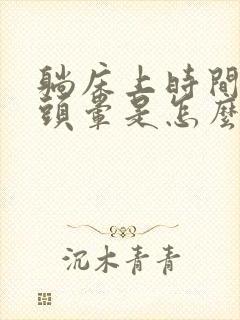 躺床上時間
頭暈是怎麼
沉木青青